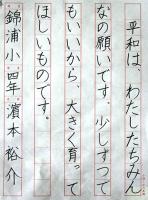 平和は、わたしたちみん
なの願いです。少しずつて
もいいから、大きく育って
ほしいものです。
錦浦小 四年 濵本 裕介